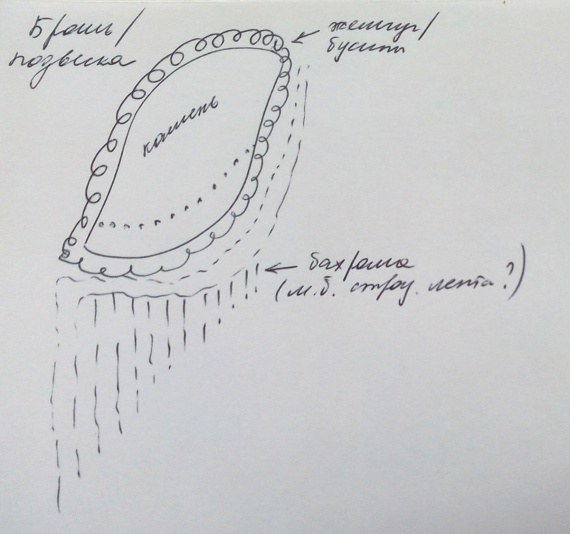 Брошь/
подвеска
жемчуг/
бусины
камень
бахрома
(м.б. страз. лента?)